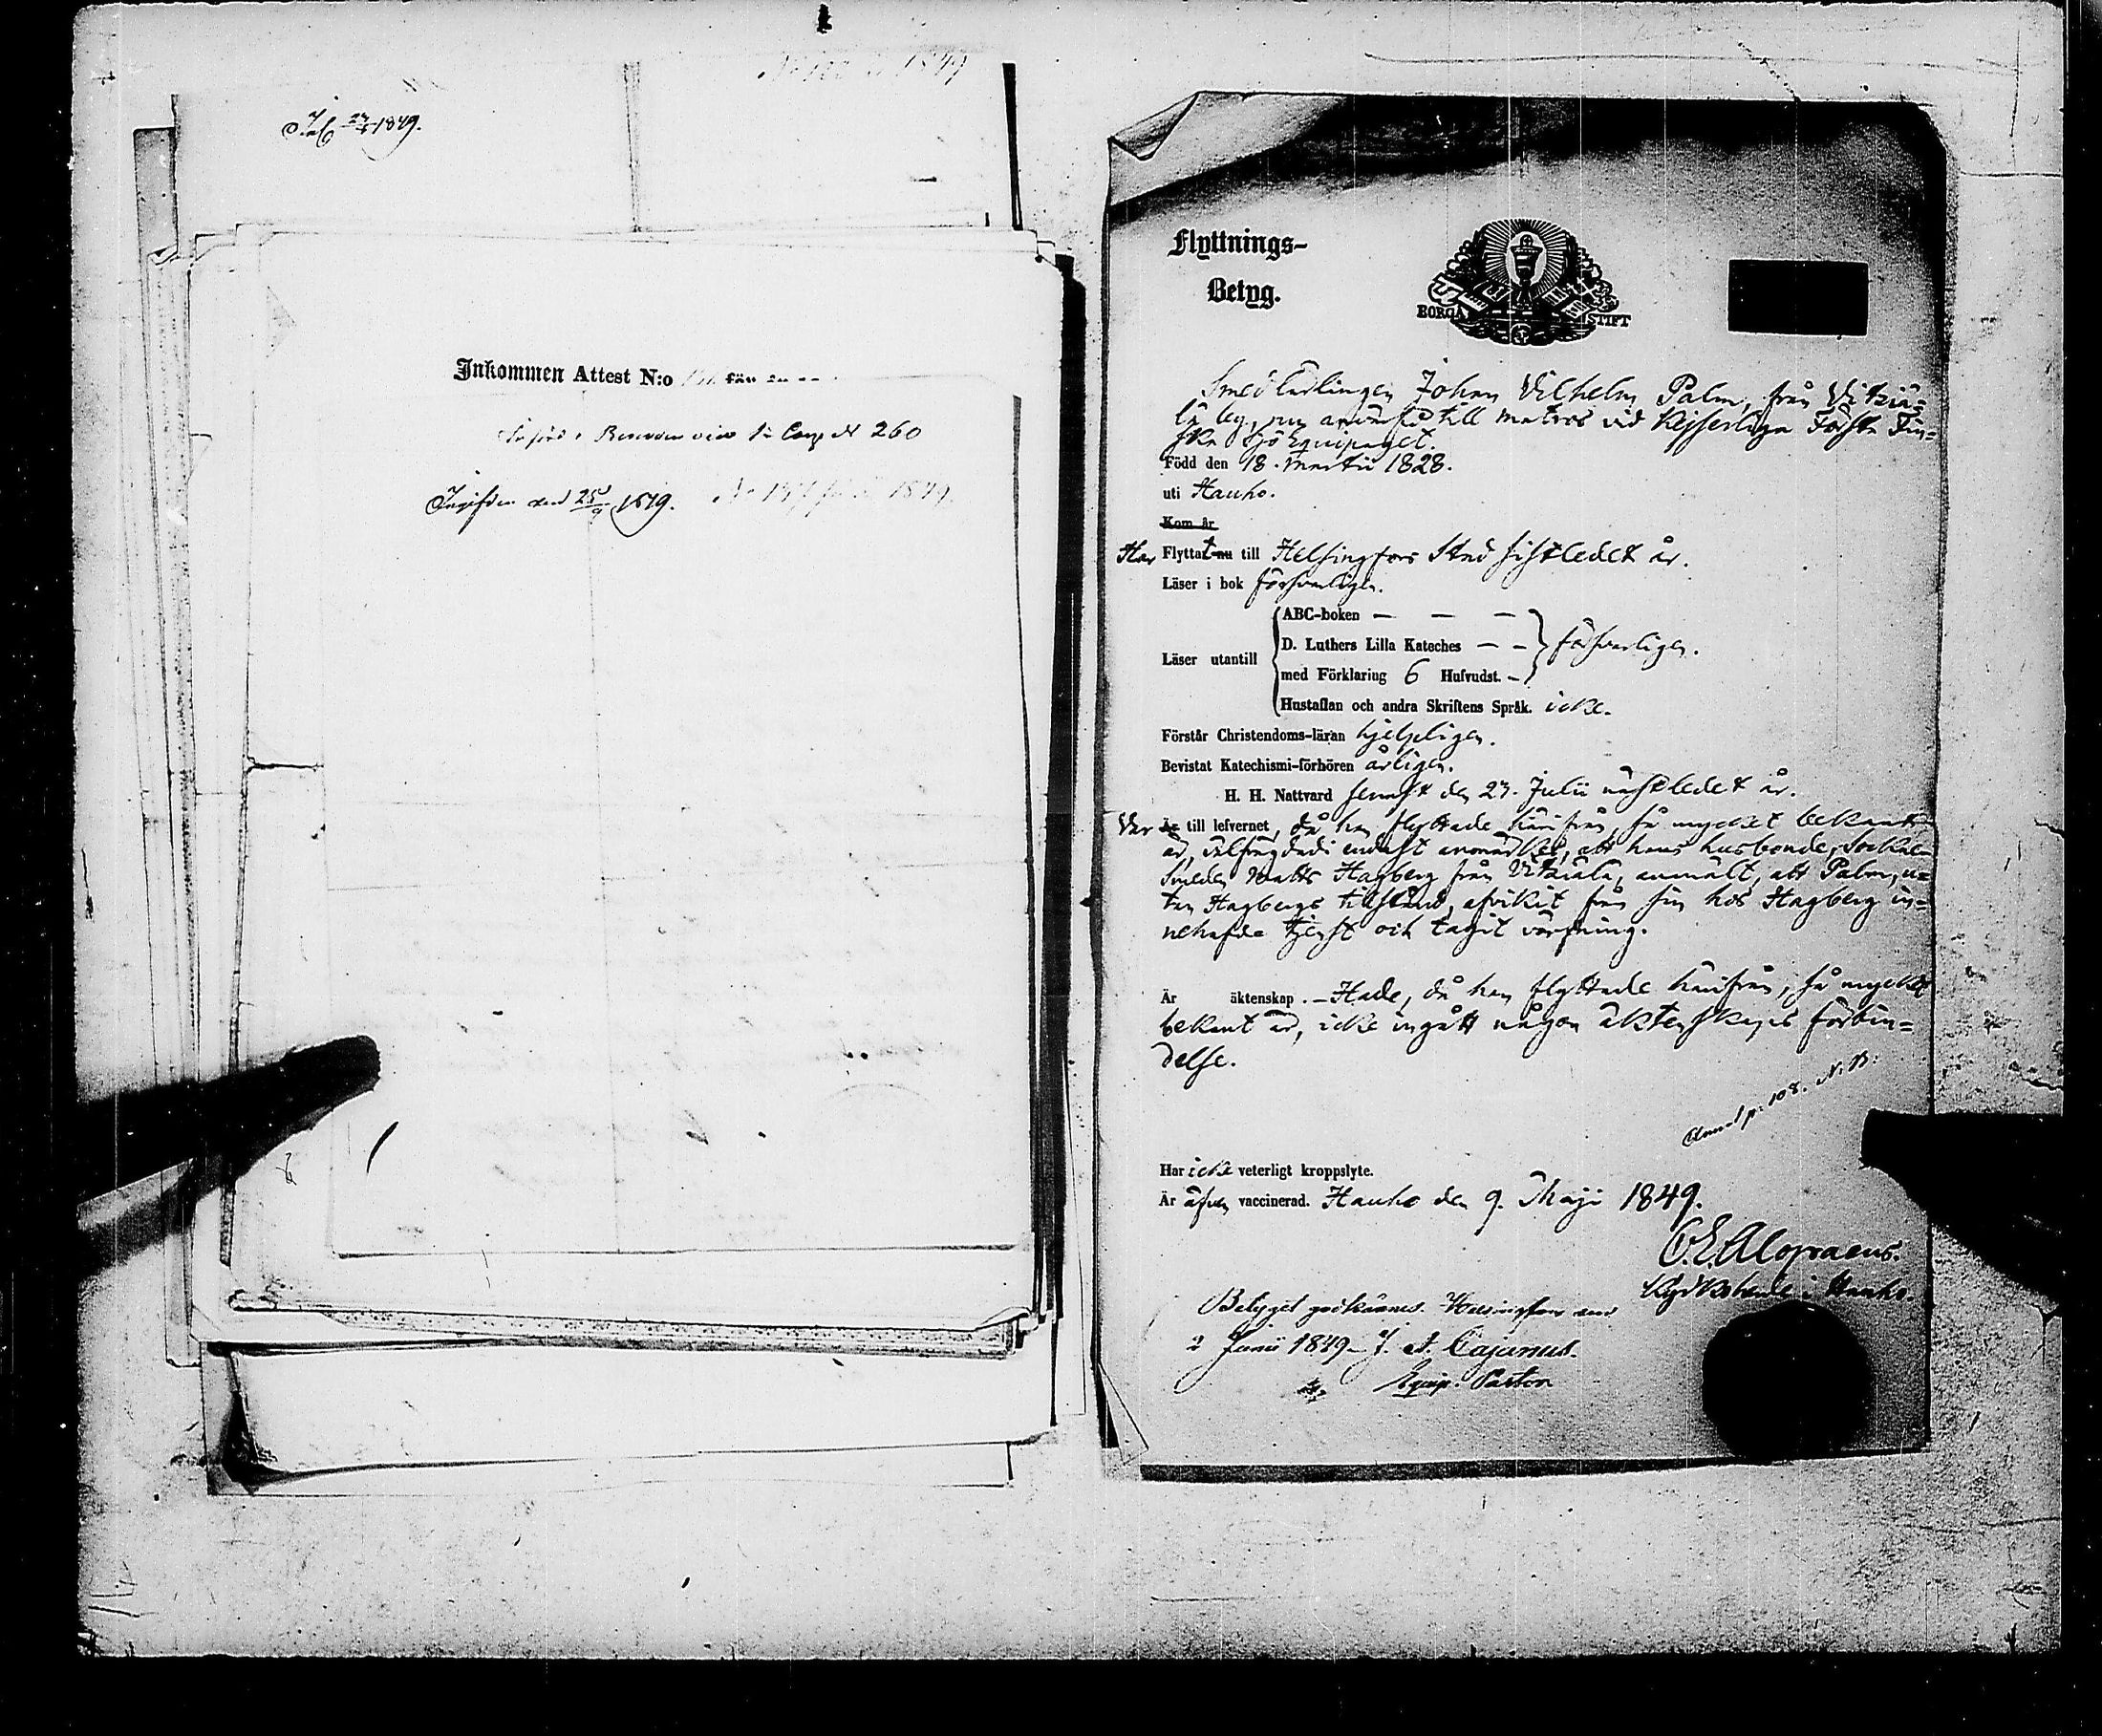 1849
Inf 24/5 1849.
Inkommen Attest N:o för
1:a Comp. N 260
Ingifven den 25/9 1849.
1849.
Flyttnings-
Betyg.
BORGÅ STIFT
Smedlärlingen Johan Vilhelm Palm, från Vitziä-
lä by, nu antagen till matros vid Kejserliga Första Fin-
ska Sjö Equipaget.
Född den 18. Martii 1828.
uti Hauho.
Kom år
Har Flyttat nu till Helsingfors Stad sistledet år.
Läser i bok försvarligen.
ABC-boken — — —
D. Luthers Lilla Kateches — — försvarligen.
Läser utantill
med Förklaring 6 Hufvudst. —
Hustaflan och andra Skriftens Språk. icke.
Förstår Christendoms-läran hjelpligen.
Bevistat Katechismi-förhören årligen.
H. H. Nattvard senast den 23. Julii nästledet år.
Var Är till lefvernet, då han flyttade härifrån, så mycket bekant
är, välfrejdad; endast anmärkes, att hans husbonde, Socken-
Smeden Matts Hagberg från Vitziälä, anmält, att Palm, u-
tan Hagbergs tillstånd, afvikit från sin hos Hagberg in-
nehafde tjenst och tagit värfning.
Är äktenskap. — Hade, då han flyttade härifrån, så mycket
bekant är, icke ingått någon äktenskaps förbin-
delse.
p. 108. N. B.
Har icke veterligt kroppslyte.
Är äfven vaccinerad. Hauho den 9. Maji 1849.
C. E. Alopaeus.
Kyrkoherde i Hauho
Betyget godkännes. Helsingfors den
2 Junii 1849. J. A. Cajanus.
Equip. Pastor